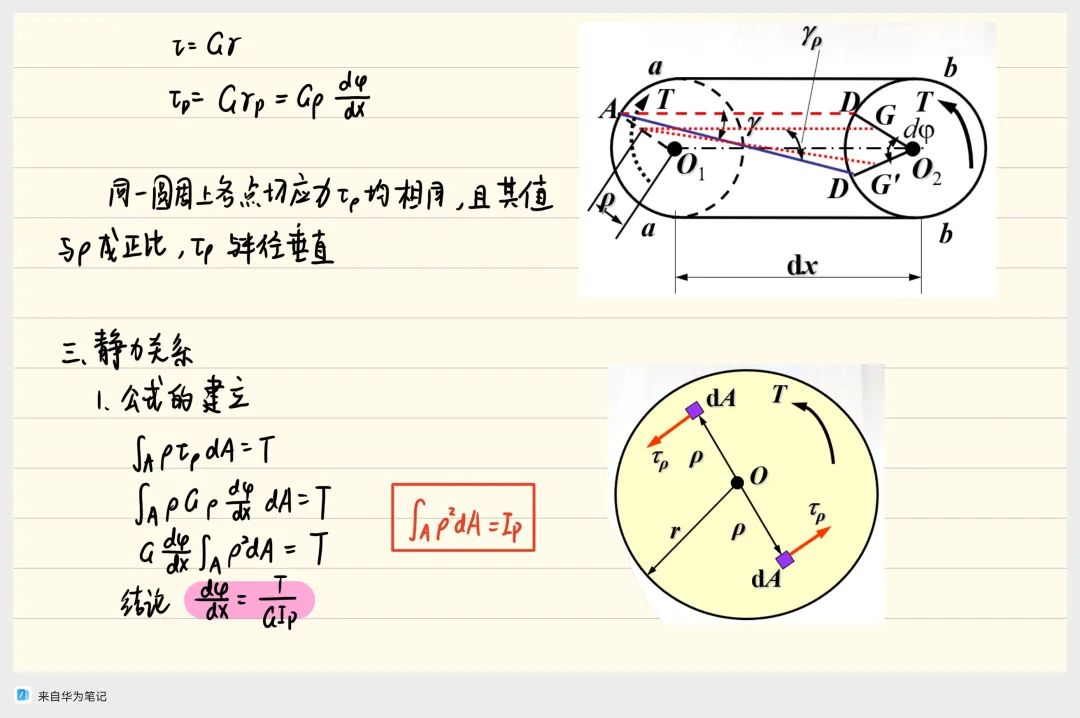 τ = Gγ
τρ = Gγρ = Gρ dφ/dx
同一圆周上各点切应力τρ均相同,且其值
与ρ成正比,τρ与半径垂直
γρ
a b
A T D G T
γ dφ
O₁ D' G' O₂
ρ
a b
dx
三、静力关系
1. 公式的建立
∫A ρτρ dA = T
∫A ρGρ dφ/dx dA = T
G dφ/dx ∫A ρ²dA = T
∫A ρ²dA = Iρ
结论 dφ/dx = T/GIρ
dA T
τρ ρ
O
r ρ τρ
dA
来自华为笔记